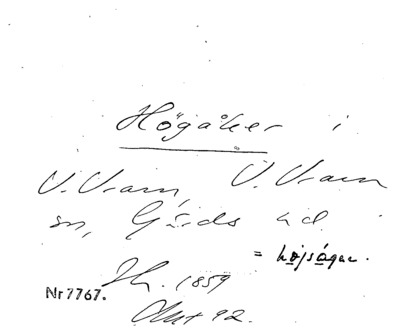 Högåker i
V. Vram, V. Vram
sn, Gärds hd.
= højságar.
Nr 7767.
1859
92.